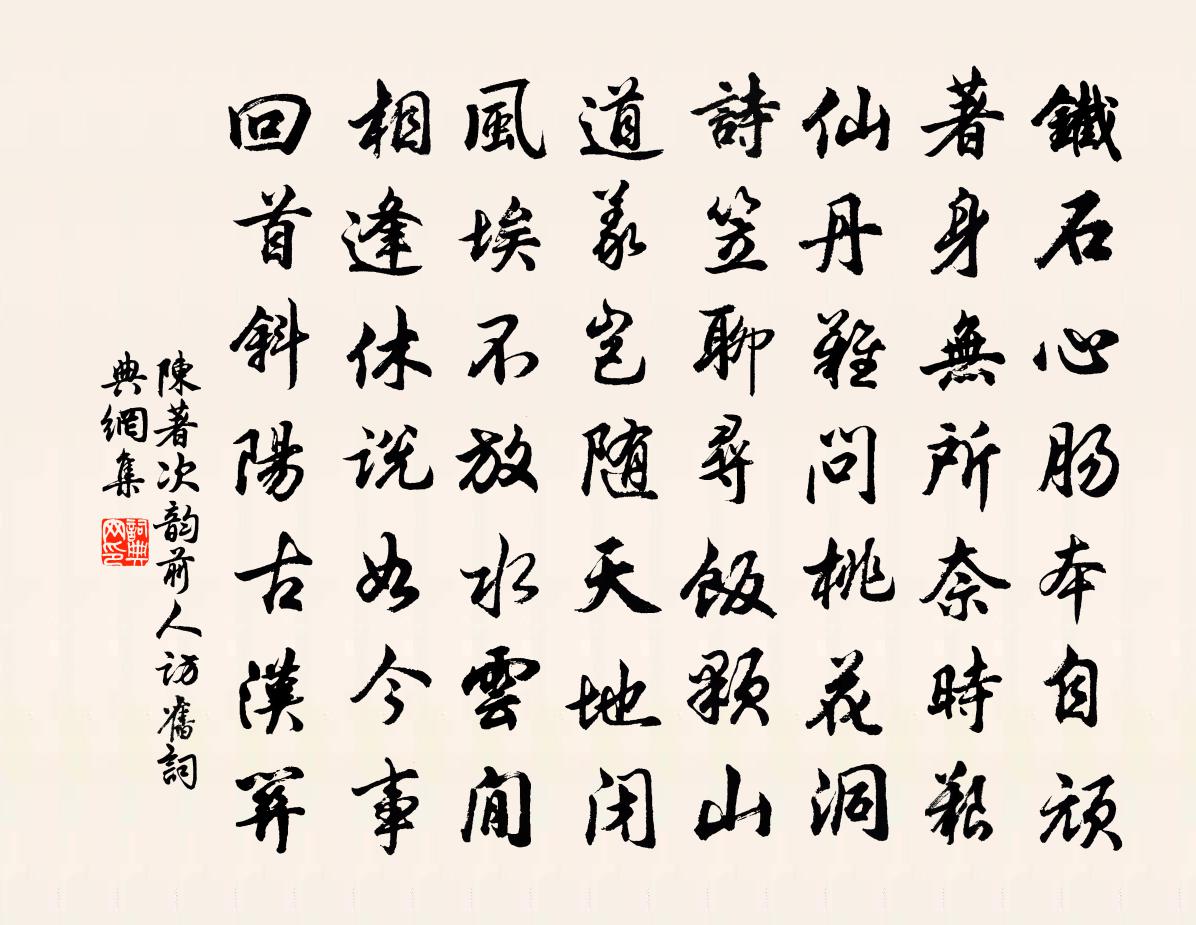 鐵石心肠本自頑
著身無所奈時艱
仙丹難問桃花洞
詩笠聊尋飯顆山
道義豈随天地闭
風埃不放水雲閒
相逢休説如今事
回首斜陽古漢関
陳著次韵前人访舊詞
典網集
詞典
网印